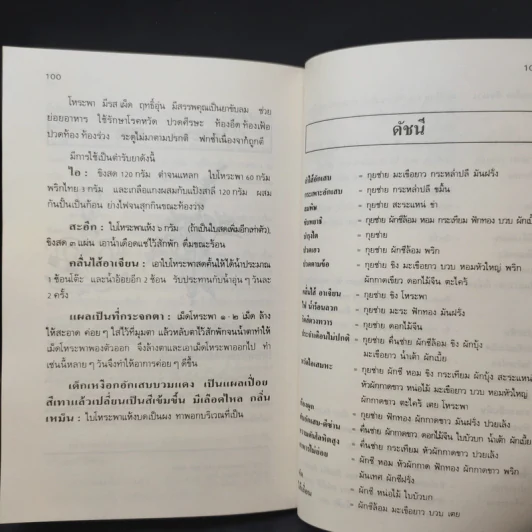 100
โหระพา มีรสเผ็ด ฤทธิ์อุ่น มีสรรพคุณเป็นยาขับลม ช่วย
ย่อยอาหาร ใช้รักษาโรคหวัด ปวดศีรษะ ท้องอืดท้องเฟ้อ
ปวดท้อง ท้องร่วง ระดูไม่มาตามปรกติ ฟกช้ำเนื่องจาก
มีการใช้เป็นตำรับยาดังนี้
ไอ : ขิงสด 120 กรัม ตำจนแหลก ใบโหระพา 60 กรัม
พริกไทย 3 กรัม และเกลือแกงผสมกับแป้งสาลี 120 กรัม ผสม
กันปั้นเป็นก้อน ย่างไฟจนสุกกินขณะท้องว่าง
สะอึก : ใบโหระพาแห้ง ๖ กรัม (ถ้าเป็นใบสดเพิ่มอีกเท่าตัว)
ขิงสด ๓ แผ่น เอาน้ำเดือดแช่ไว้สักพัก ดื่มขณะร้อน
คลื่นไส้อาเจียน : เอาใบโหระพาสดคั้นให้ได้น้ำประมาณ
1 ช้อนโต๊ะ และน้ำอ้อยอีก 2 ช้อน รับประทานกับน้ำอุ่น ๆ วันละ
2 ครั้ง
แผลเป็นที่กระจกตา : เม็ดโหระพา ๑ - ๒ เม็ด ล้าง
ให้สะอาด ค่อย ๆ ใส่ไว้ที่มุมตา แล้วหลับตาไว้สักพักจนน้ำตาทำให้
เม็ดโหระพาพองตัวออก จึงล้างตาและเอาเม็ดโหระพาออกไป ทำ
เช่นนี้หลาย ๆ วันจึงทำให้อาการค่อย ๆ ดีขึ้น
เด็กเหงือกอักเสบบวมแดง เป็นแผลเปื่อย
สีเทาแล้วเปลี่ยนเป็นสีเข้มขึ้น มีเลือดไหล กลิ่น
เหม็น : ใบโหระพาแห้งบดเป็นผง ทาพอกบริเวณที่เป็น
10
ดัชนี
= กุยช่าย มะเขือยาว กระหล่ำปลี มันฝรั่ง
= กุยช่าย กระหล่ำปลี ขมิ้น
= กุยช่าย สะระแหน่ ข่า
= กุยช่าย ผักชีล้อม หอม กระเทียม ฟักทอง บวบ
= กุยช่าย
= กุยช่าย ผักชีล้อม พริก
= กุยช่าย ขิง มะเขือยาว บวบ หอมหัวใหญ่ พริก
ผักกาดเขียว ดอกไม้จีน ตะไคร้
อาเจียน = กุยช่าย ขิง โหระพา
= กุยช่าย มะระ ฟักทอง มันฝรั่ง
= กุยช่าย ดอกไม้จีน
= กุยช่าย คื่นช่าย ผักชีล้อม ขิง ผักบุ้ง
มะเขือยาว น้ำเต้า ผักเบี้ย
= ผักชี หอม ขิง กระเทียม ผักบุ้ง สะระแหน่
หัวผักกาดขาว หน่อไม้ มะเขือยาว บวบ หอมหัวใหญ่
ผักกาดขาว ตะไคร้ เตย โหระพา
= กุยช่าย ฟักทอง ผักกาดขาว มันฝรั่ง ปวยเล้ง
= คื่นช่าย ผักกาดขาว ดอกไม้จีน ใบบัวบก น้ำเต้า
= คื่นช่าย กระเทียม หัวผักกาดขาว ปวยเล้ง
= ผักชี หอม หัวผักกาด ฟักทอง ผักกาดขาว พริก
มันเทศ ผักชีฝรั่ง
= ผักชี หน่อไม้ ใบบัวบก
= ผักชีล้อม มะเขือยาว บวบ เตย